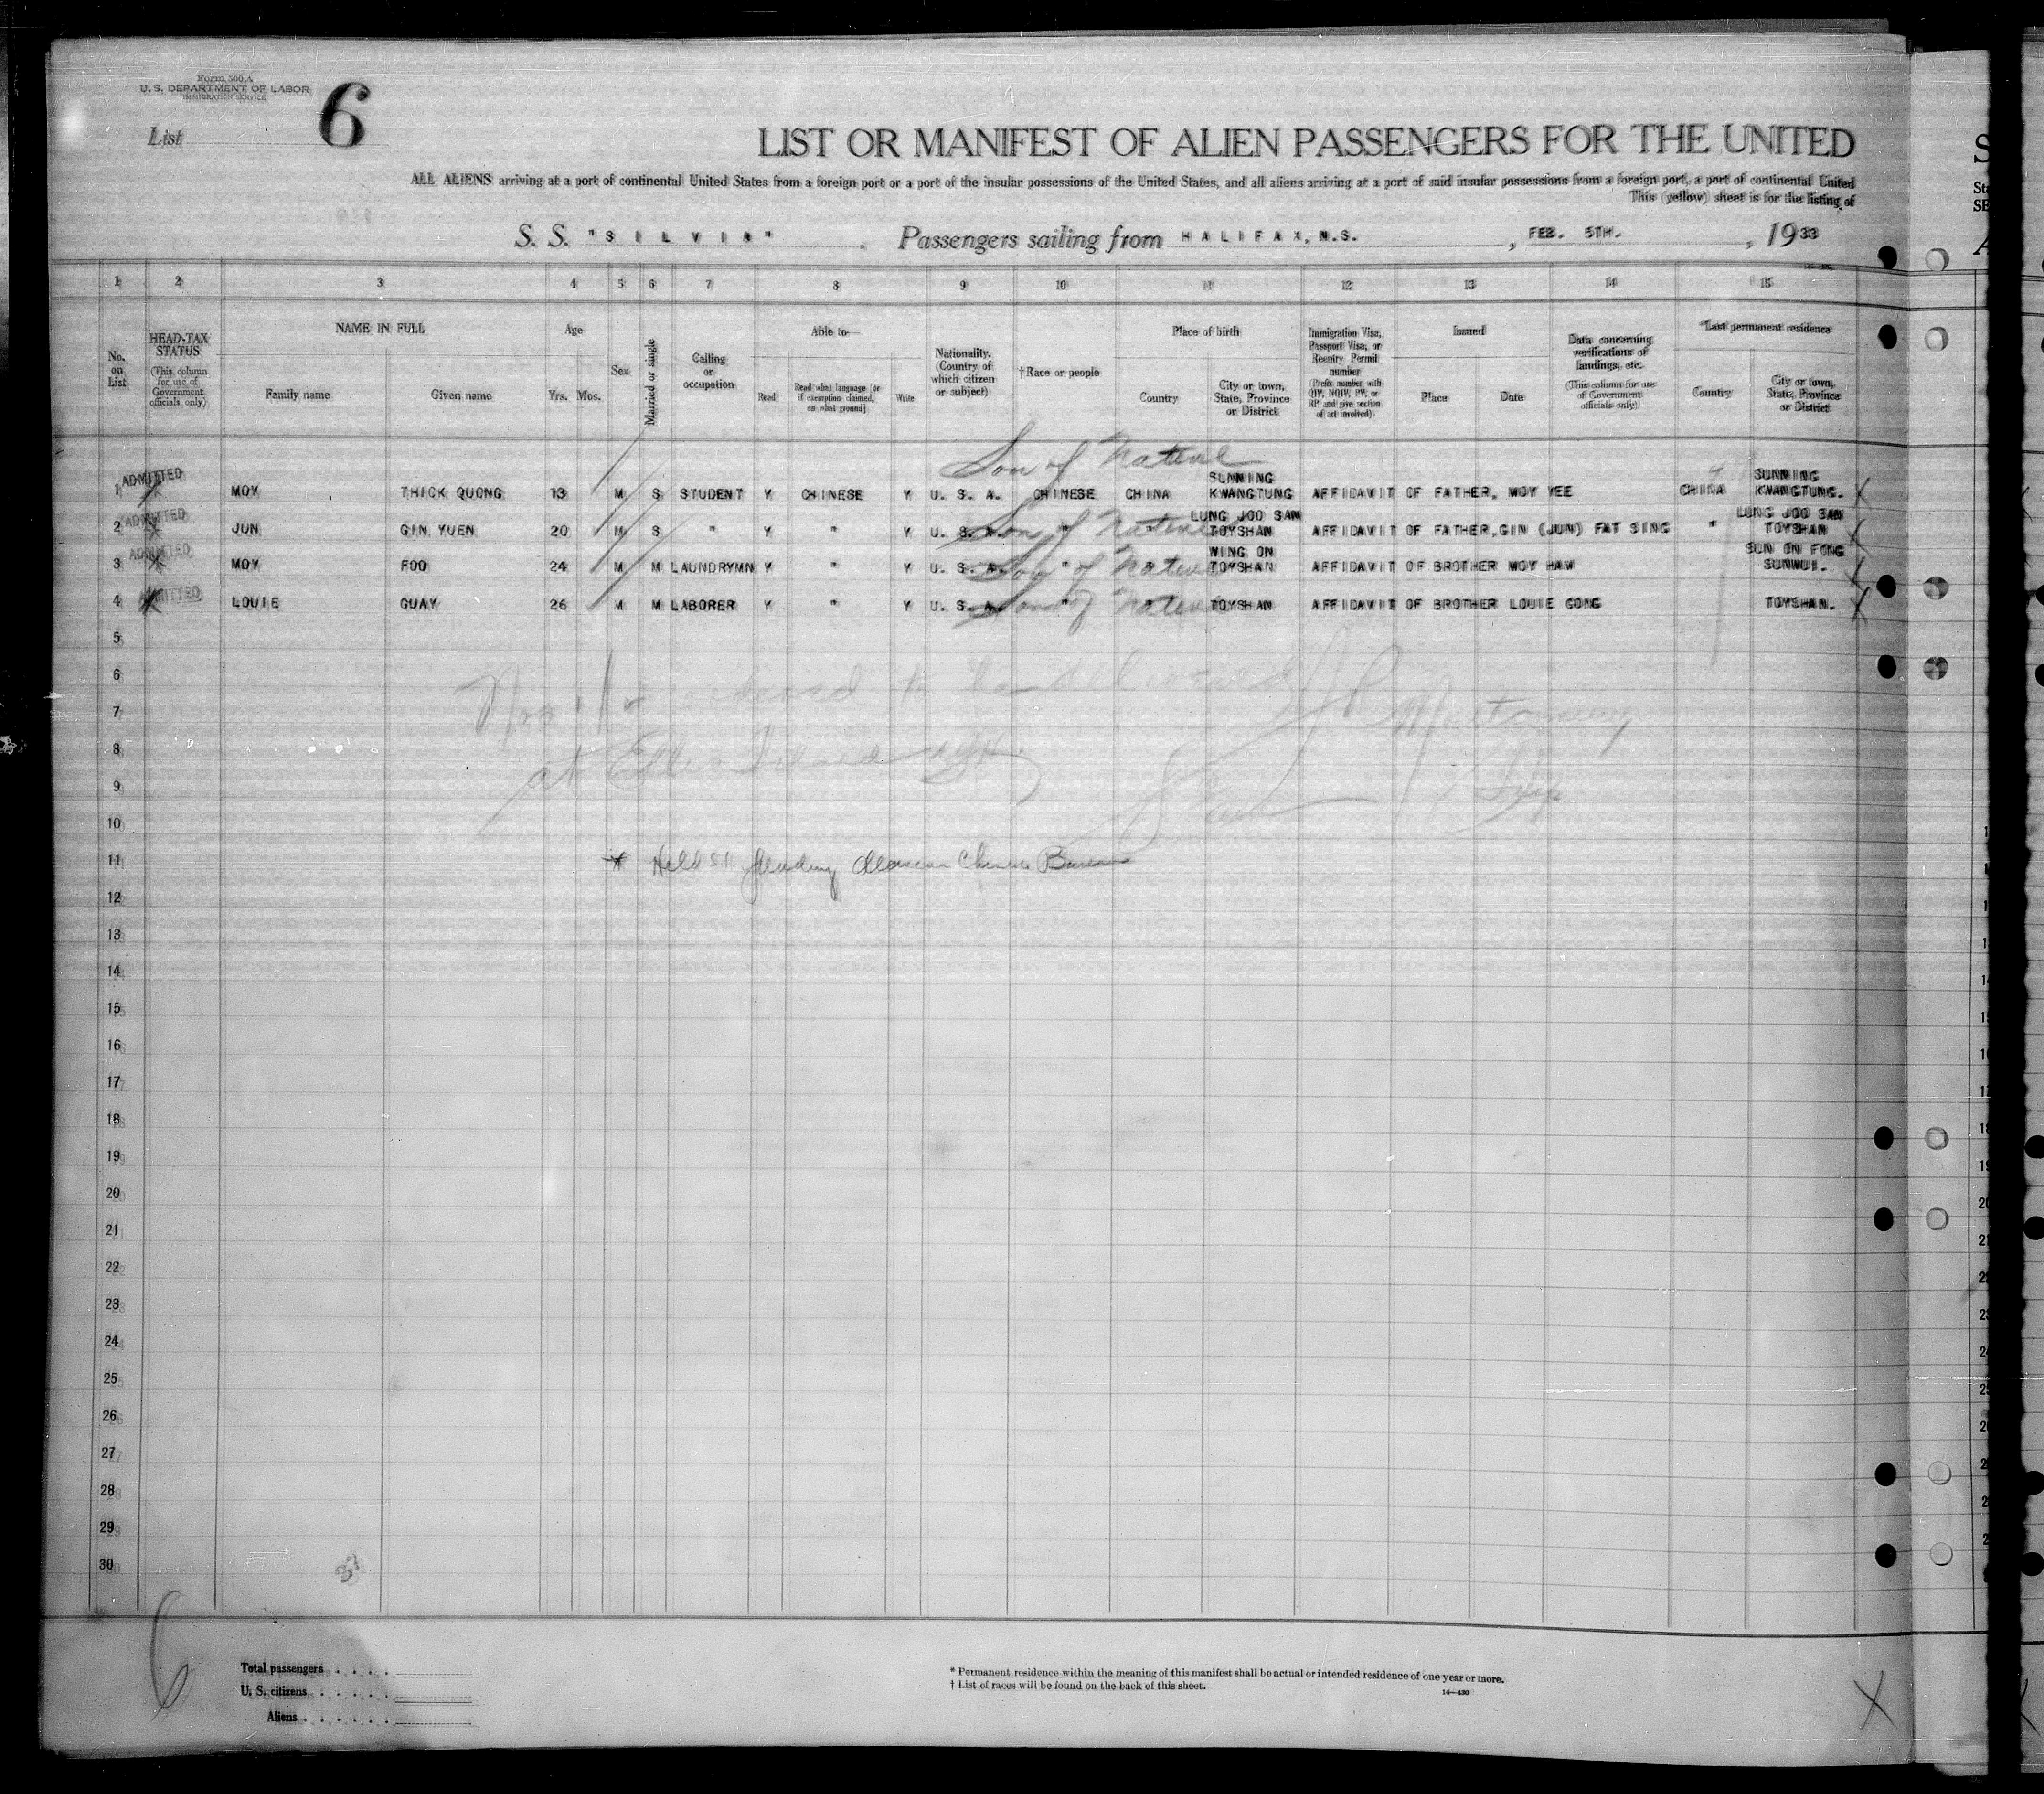 Form 500 A
U. S. DEPARTMENT OF LABOR
IMMIGRATION SERVICE
List 6
LIST OR MANIFEST OF ALIEN PASSENGERS FOR THE UNITED
ALL ALIENS arriving at a port of continental United States from a foreign port or a port of the insular possessions of the United States, and all aliens arriving at a port of said insular possessions from a foreign port, a port of continental United
This (yellow) sheet is for the listing of
S. S. "SILVIA" Passengers sailing from HALIFAX, N.S., FEB. 5TH., 1933
1 2 3 4 5 6 7 8 9 10 11 12 13 14 15
No. on List
HEAD-TAX STATUS (This column for use of Government officials only)
NAME IN FULL Family name Given name
Age Yrs. Mos.
Sex
Married or single
Calling or occupation
Able to— Read Read what language [or if exemption claimed, on what ground] Write
Nationality. (Country of which citizen or subject)
†Race or people
Place of birth Country City or town, State, Province or District
Immigration Visa, Passport Visa, or Reentry Permit number (Prefix number with QIV, NQIV, PV, or RP and give section of act involved)
Issued Place Date
Data concerning verifications of landings, etc. (This column for use of Government officials only)
*Last permanent residence Country City or town, State, Province or District
Son of Native
SUNNING SUNNING
1 ADMITTED MOY THICK QUONG 13 M S STUDENT Y CHINESE Y U. S. A. CHINESE CHINA KWANGTUNG AFFIDAVIT OF FATHER, MOY YEE CHINA KWANGTUNG. X
LUNG JOO SAN LUNG JOO SAN
2 ADMITTED JUN GIN YUEN 20 M S " Y " Y U. S. A. Son of Native TOYSHAN AFFIDAVIT OF FATHER, GIN (JUN) FAT SING " TOYSHAN X
WING ON SUN ON FONG
3 ADMITTED MOY FOO 24 M M LAUNDRYMN Y " Y U. S. A. " Son of Native TOYSHAN AFFIDAVIT OF BROTHER MOY HAW SUNWUI. X
4 ADMITTED LOUIE GUAY 26 M M LABORER Y " Y U. S. A. " Son of Native TOYSHAN AFFIDAVIT OF BROTHER LOUIE GONG TOYSHAN. X
5
6
Nos ordered to be delivered J R Montgomery
7
8
at Ellis Island NYH Insp
9
10
11 * Held S.I. Pending decision Chinese Bureau
12
13
14
15
16
17
18
19
20
21
22
23
24
25
26
27
28
29
30
6
Total passengers
U. S. citizens
Aliens
* Permanent residence within the meaning of this manifest shall be actual or intended residence of one year or more.
† List of races will be found on the back of this sheet.
14—430
X